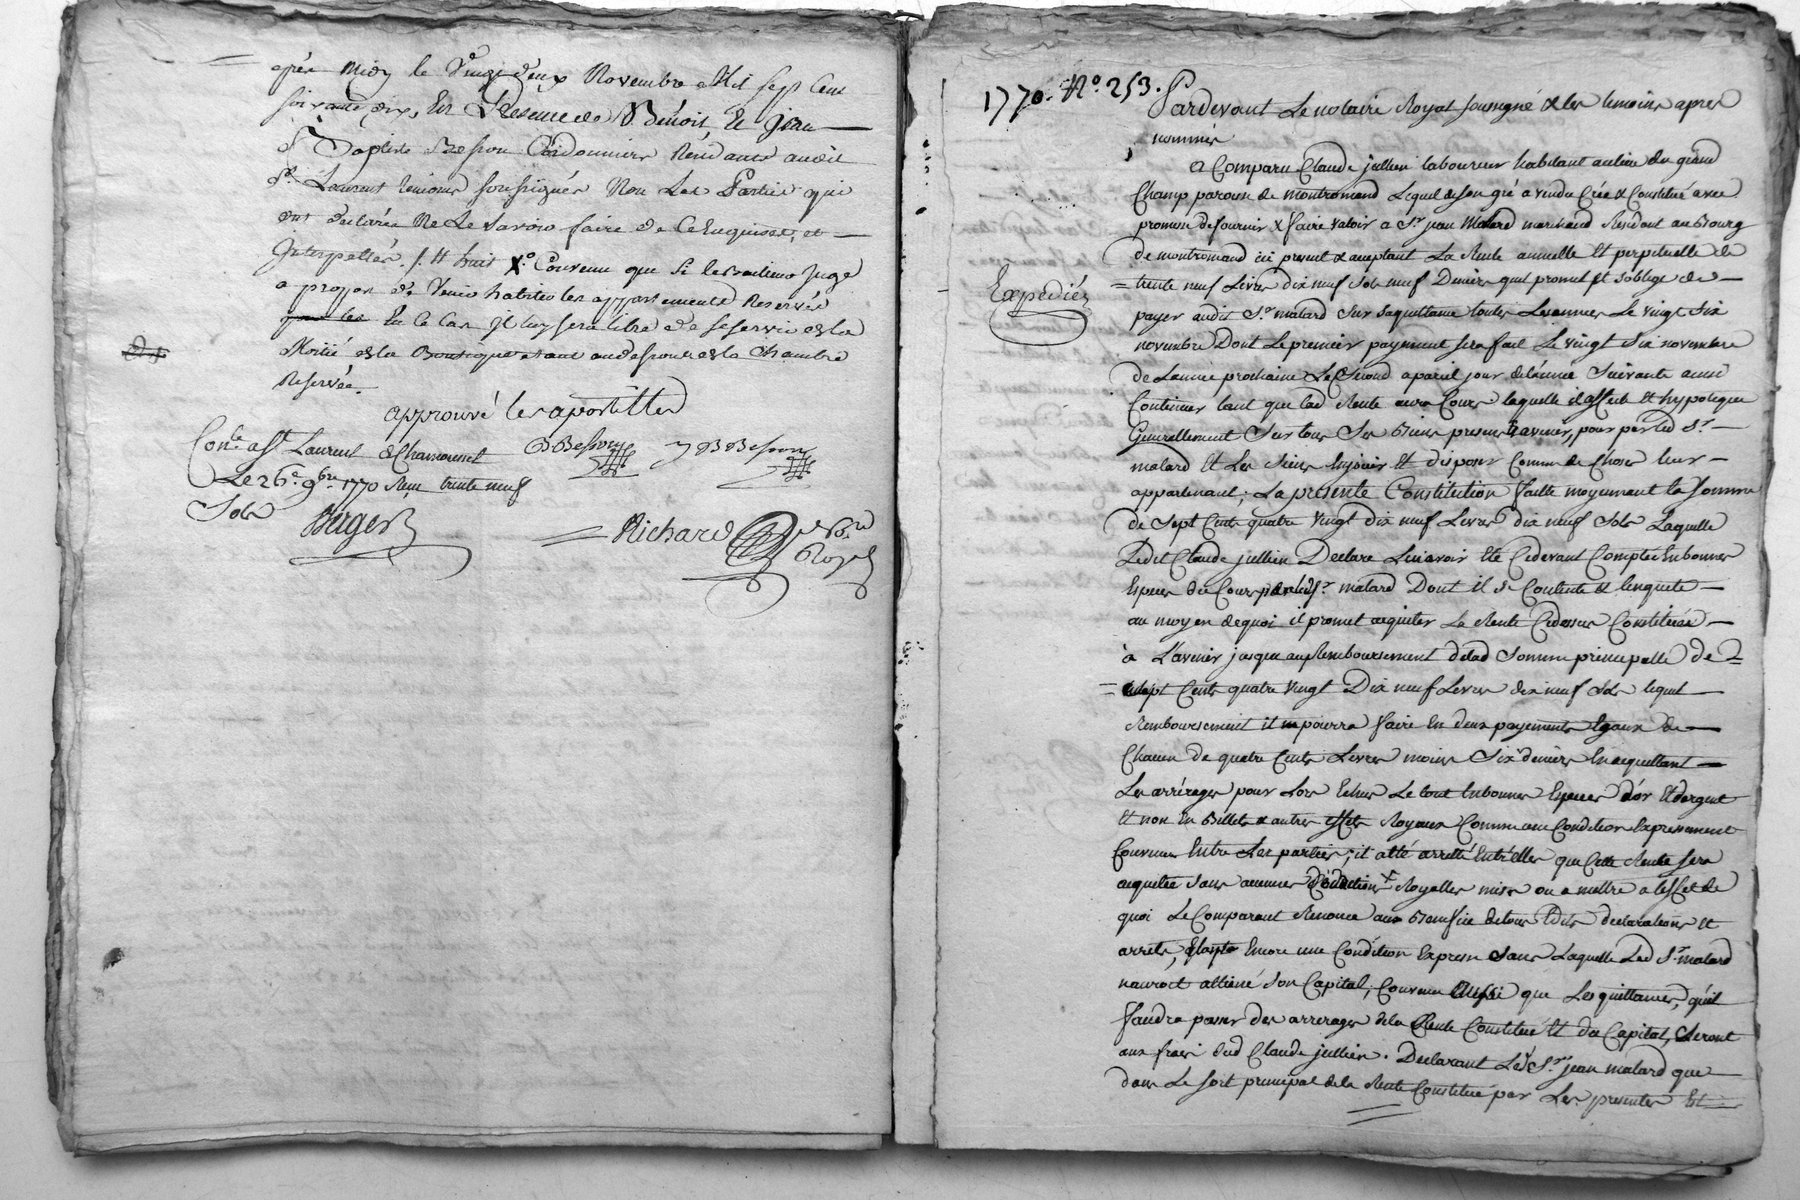 après midy le vingt deux Novembre mil sept cent
soixante dix, En Presence de Benoit, & Jean
Baptiste Besson Cordonniers Residants audit
St. Laurent temoins soussignés Non Les Parties qui
ont declarées Ne Le savoir faire de ce Enquises, et
Interpellés ./. Convenu que si
a propos de Venir habiter les appartements Reservés
En ce Cas il luy sera libre de se servir de la
Moitié de la Boutique étant au dessous de la Chambre
Reservée
approuvé les apostilles
Conlé à St Laurent de Chamousset
B Besson J B Besson
Le 26e 9bre 1770 Reçu trente neuf
Sols
Berger
Richard
Royal
1770. No. 253.
Expedié
Pardevant Le notaire Royal soussigné & les temoins apres
nommés
a Comparu Claude jullien laboureur habitant au lieu du grand
Champ paroisse de montromand Lequel de son gré a vendu Créé & Constitué avec
promesse de fournir & faire valoir a Sr. jean Malard marchand Residant au Bourg
de montromand ici present & acceptant La Rente annuelle Et perpetuelle de
trente neuf Livres dix neuf Sols neuf Deniers quil promet Et soblige de
payer audit Sr. malard Sur sa quittance toutes Les années Le vingt six
novembre Dont Le premier payement sera fait Le vingt six novembre
de Lannée prochaine Le Second a pareil jour de lannée Suivante ainsi
Continuer tant que lad Rente aura Cours laquelle il assied Et hypoteque
Generallement Sur tous Ses Biens presents & avenir, pour par led Sr.
malard Et Les Siens En jouir Et disposer Comme de Chose leur
appartenant; La presente Constitution faitte moyennant la somme
de Sept Cents quatre vingt dix neuf Livres dix neuf Sols Laquelle
Ledit Claude jullien Declare Lui avoir Eté Cy devant Comptée En bonnes
Especes du Cours par led Sr. malard Dont il Se Contente & l'en quitte
au moyen de quoi il promet acquiter La Rente Cidessus Constituée
à L'avenir jusques au Remboursement de lad Somme principalle de
Sept Cents quatre vingt Dix neuf Livres dix neuf Sols lequel
Remboursement il pourra faire En deux payements Egaux de
Chacun de quatre Cents Livres moins Six deniers En acquittant
Les arrérages pour Lors Echus Le tout En bonnes Especes d'or Et d'argent
Et non En Billets & autres Effets Royaux Comme une Condition Expressement
Convenue Entre Les parties; il a été arretté Entr'elles que Cette Rente sera
acquitée Sans aucunes Deductions Royalles mises ou a mettre a l'effet de
quoi Le Comparant Renonce aux Benefice de tous Edits declarations Et
arrets, Encore une Condition Expresse Sans Laquelle Led Sr. malard
n'auroit alliéné Son Capital; Convenu aussi que Les quittances, qu'il
faudra passer des arrerages de la Rente Constituée Et du Capital, Seront
aux frais dud Claude jullien. Declarant Led Sr. jean malard que
dans Le Sort principal de la Rente Constituée par Les presentes Est